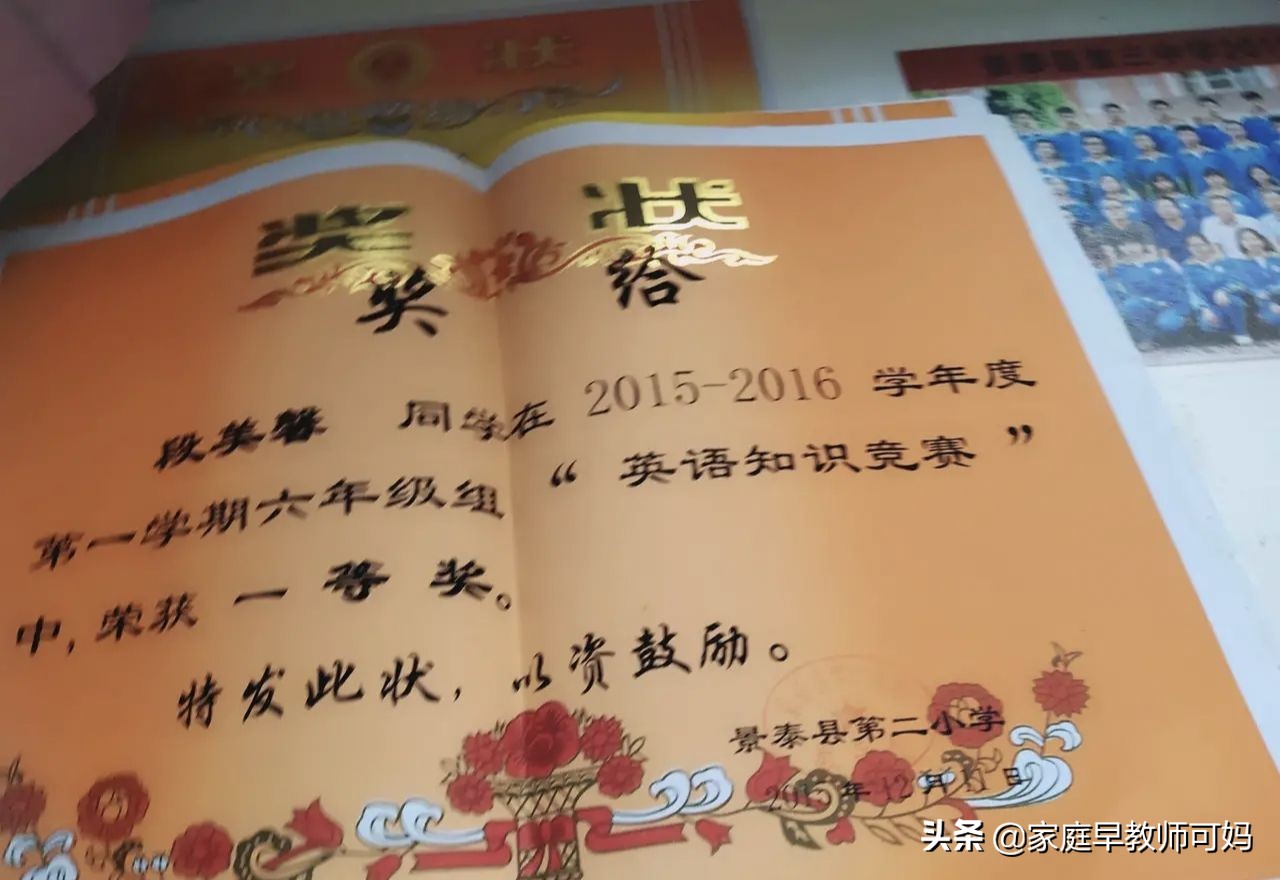 奖 状
景泰县第三中学
奖 状
奖 给
段美馨 同学在 2015-2016 学年度
第一学期六年级组“英语知识竞赛”
中,荣获 一 等 奖。
特发此状,以资鼓励。
景泰县第二小学
2015年12月 日
头条 @家庭早教师可妈